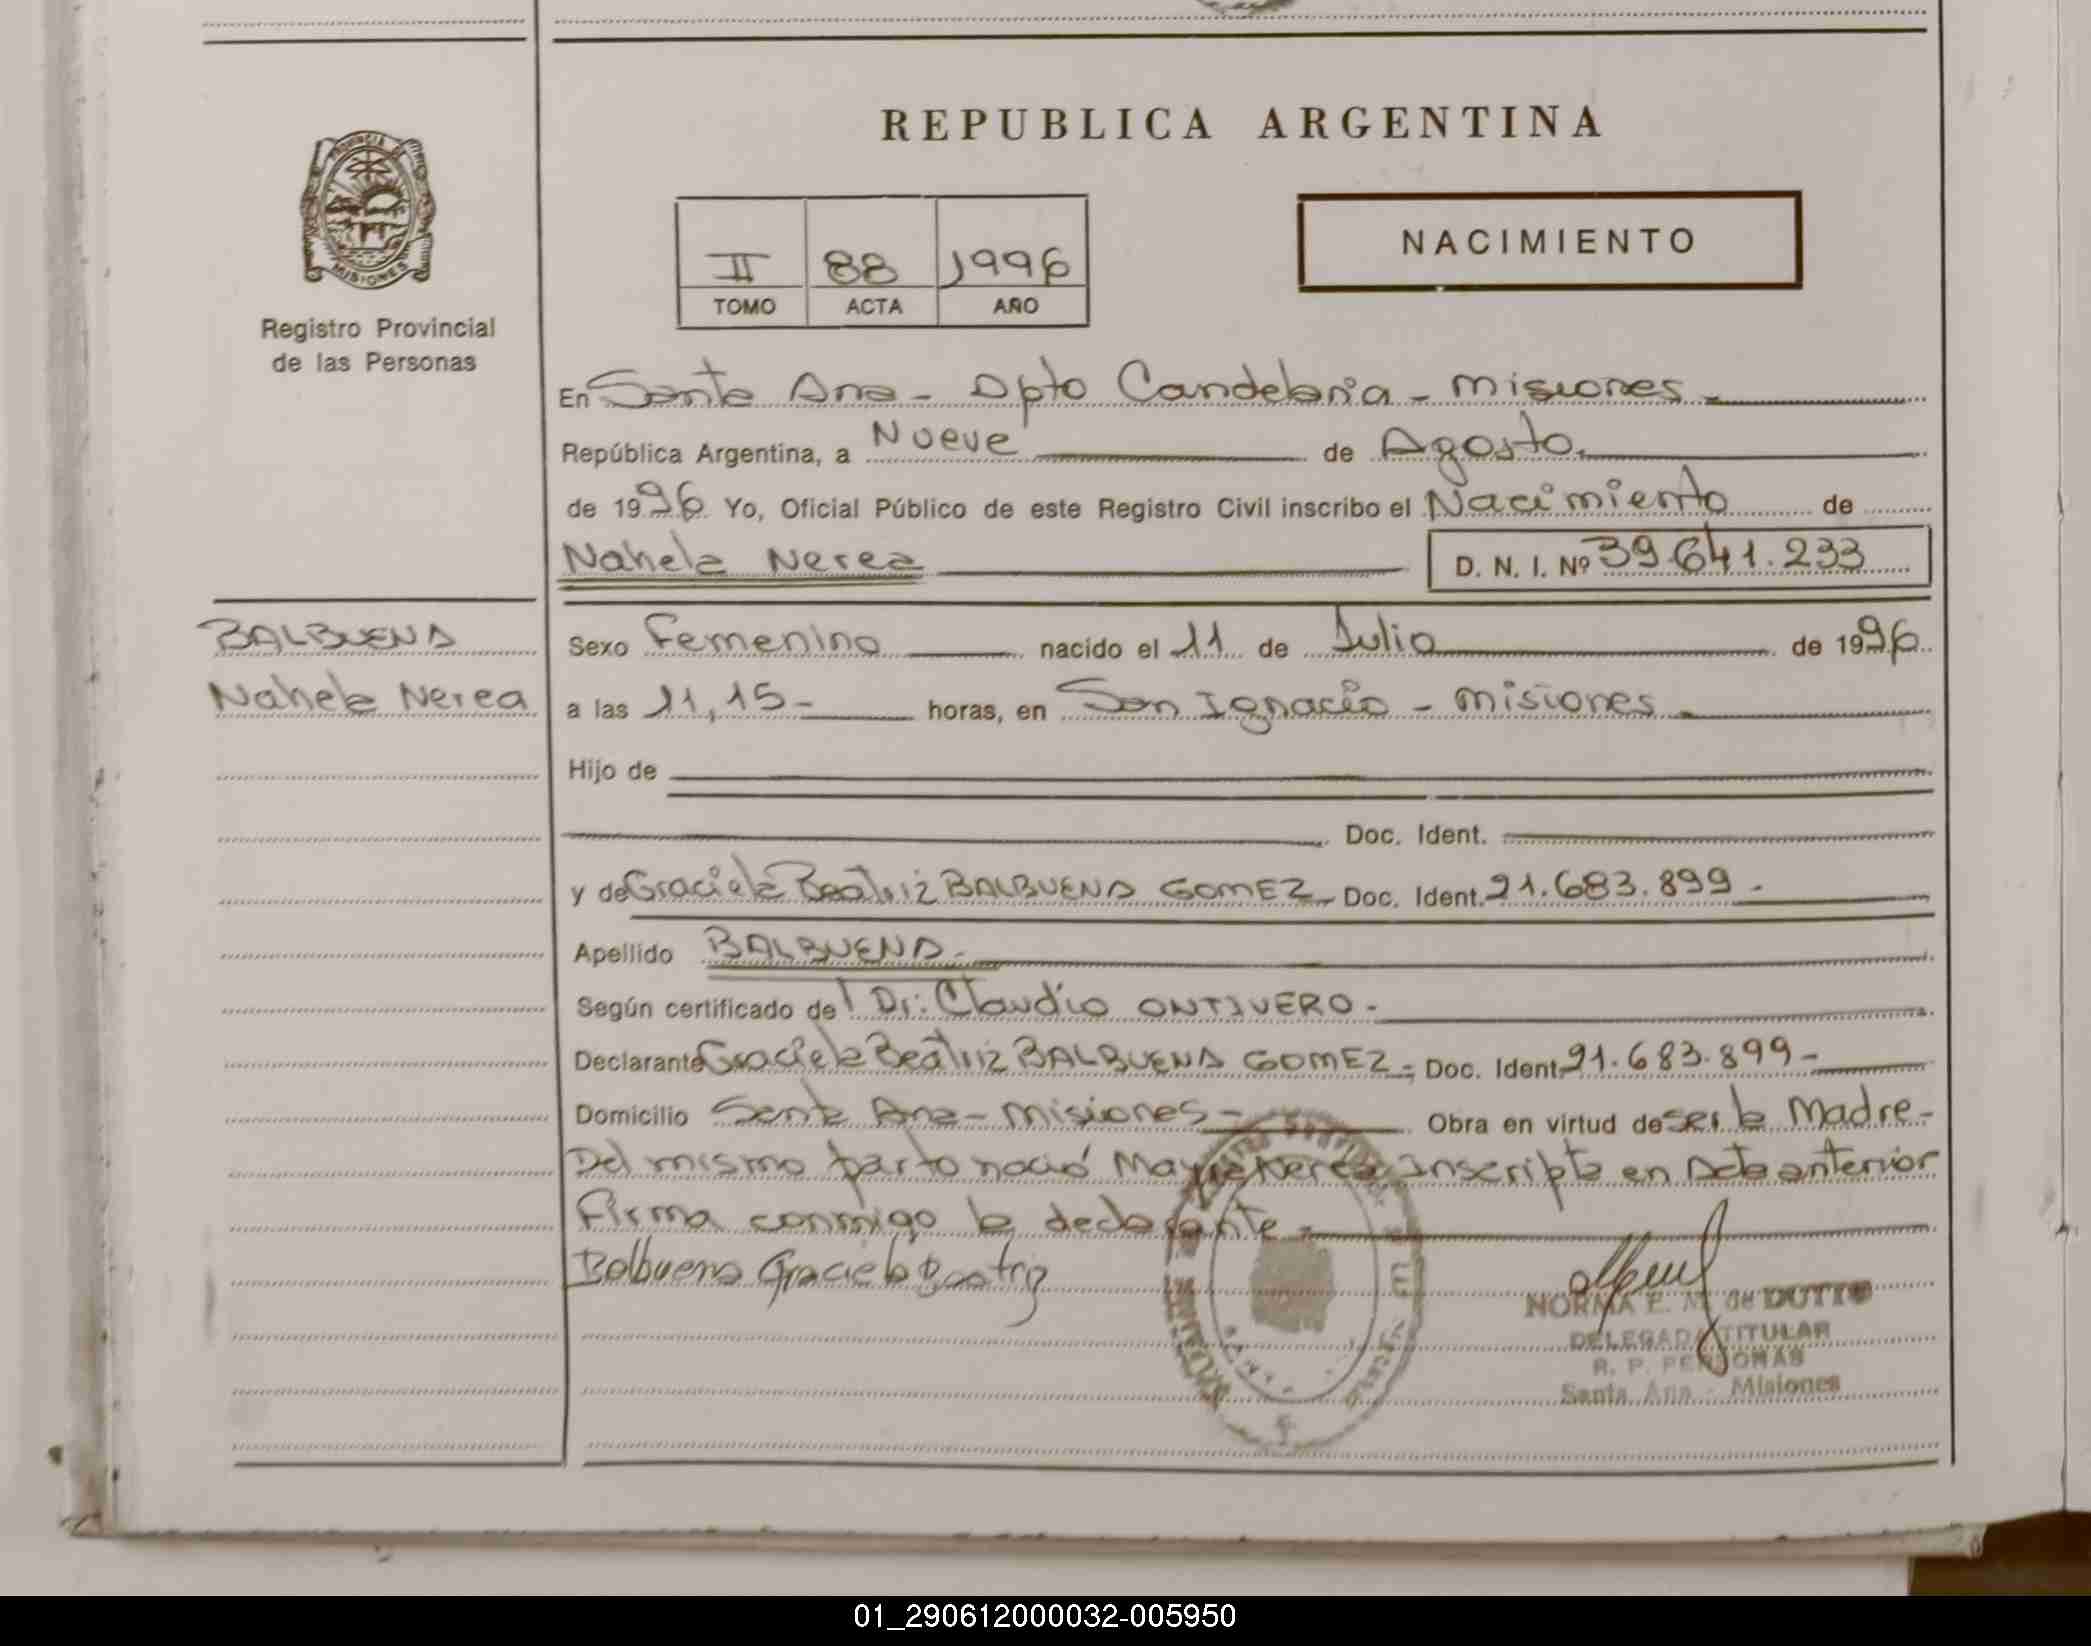 REPUBLICA ARGENTINA
NACIMIENTO
II 88 1996
TOMO ACTA AÑO
PROVINCIA DE
MISIONES
Registro Provincial
de las Personas
En Santa Ana - Dpto Candelaria - Misiones -
República Argentina, a Nueve de Agosto.
de 1996 Yo, Oficial Público de este Registro Civil inscribo el Nacimiento de
Nahela Nerea D. N. I. Nº 39.641.233
BALBUENA
Nahela Nerea
Sexo Femenino nacido el 11 de Julio de 1996
a las 11,15- horas, en San Ignacio - Misiones -
Hijo de
Doc. Ident.
y de Graciela Beatriz BALBUENA GOMEZ - Doc. Ident. 21.683.899 -
Apellido BALBUENA -
Según certificado del Dr: Claudio ONTIVERO -
Declarante Graciela Beatriz BALBUENA GOMEZ - Doc. Ident. 21.683.899 -
Domicilio Santa Ana - Misiones - Obra en virtud de ser la Madre -
Del mismo parto nació Nerea Inscripta en Acta anterior
Firma conmigo la declarante -
Balbuena Graciela Beatriz
NORMA E. M. de DUTTO
DELEGADA TITULAR
R. P. PERSONAS
Santa Ana - Misiones
01_290612000032-005950